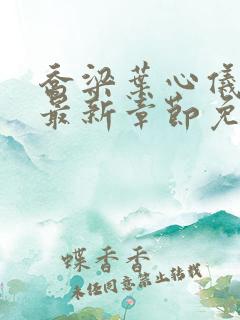 乔梁叶心仪
最新章节免
蝶香香
未经同意禁止转载